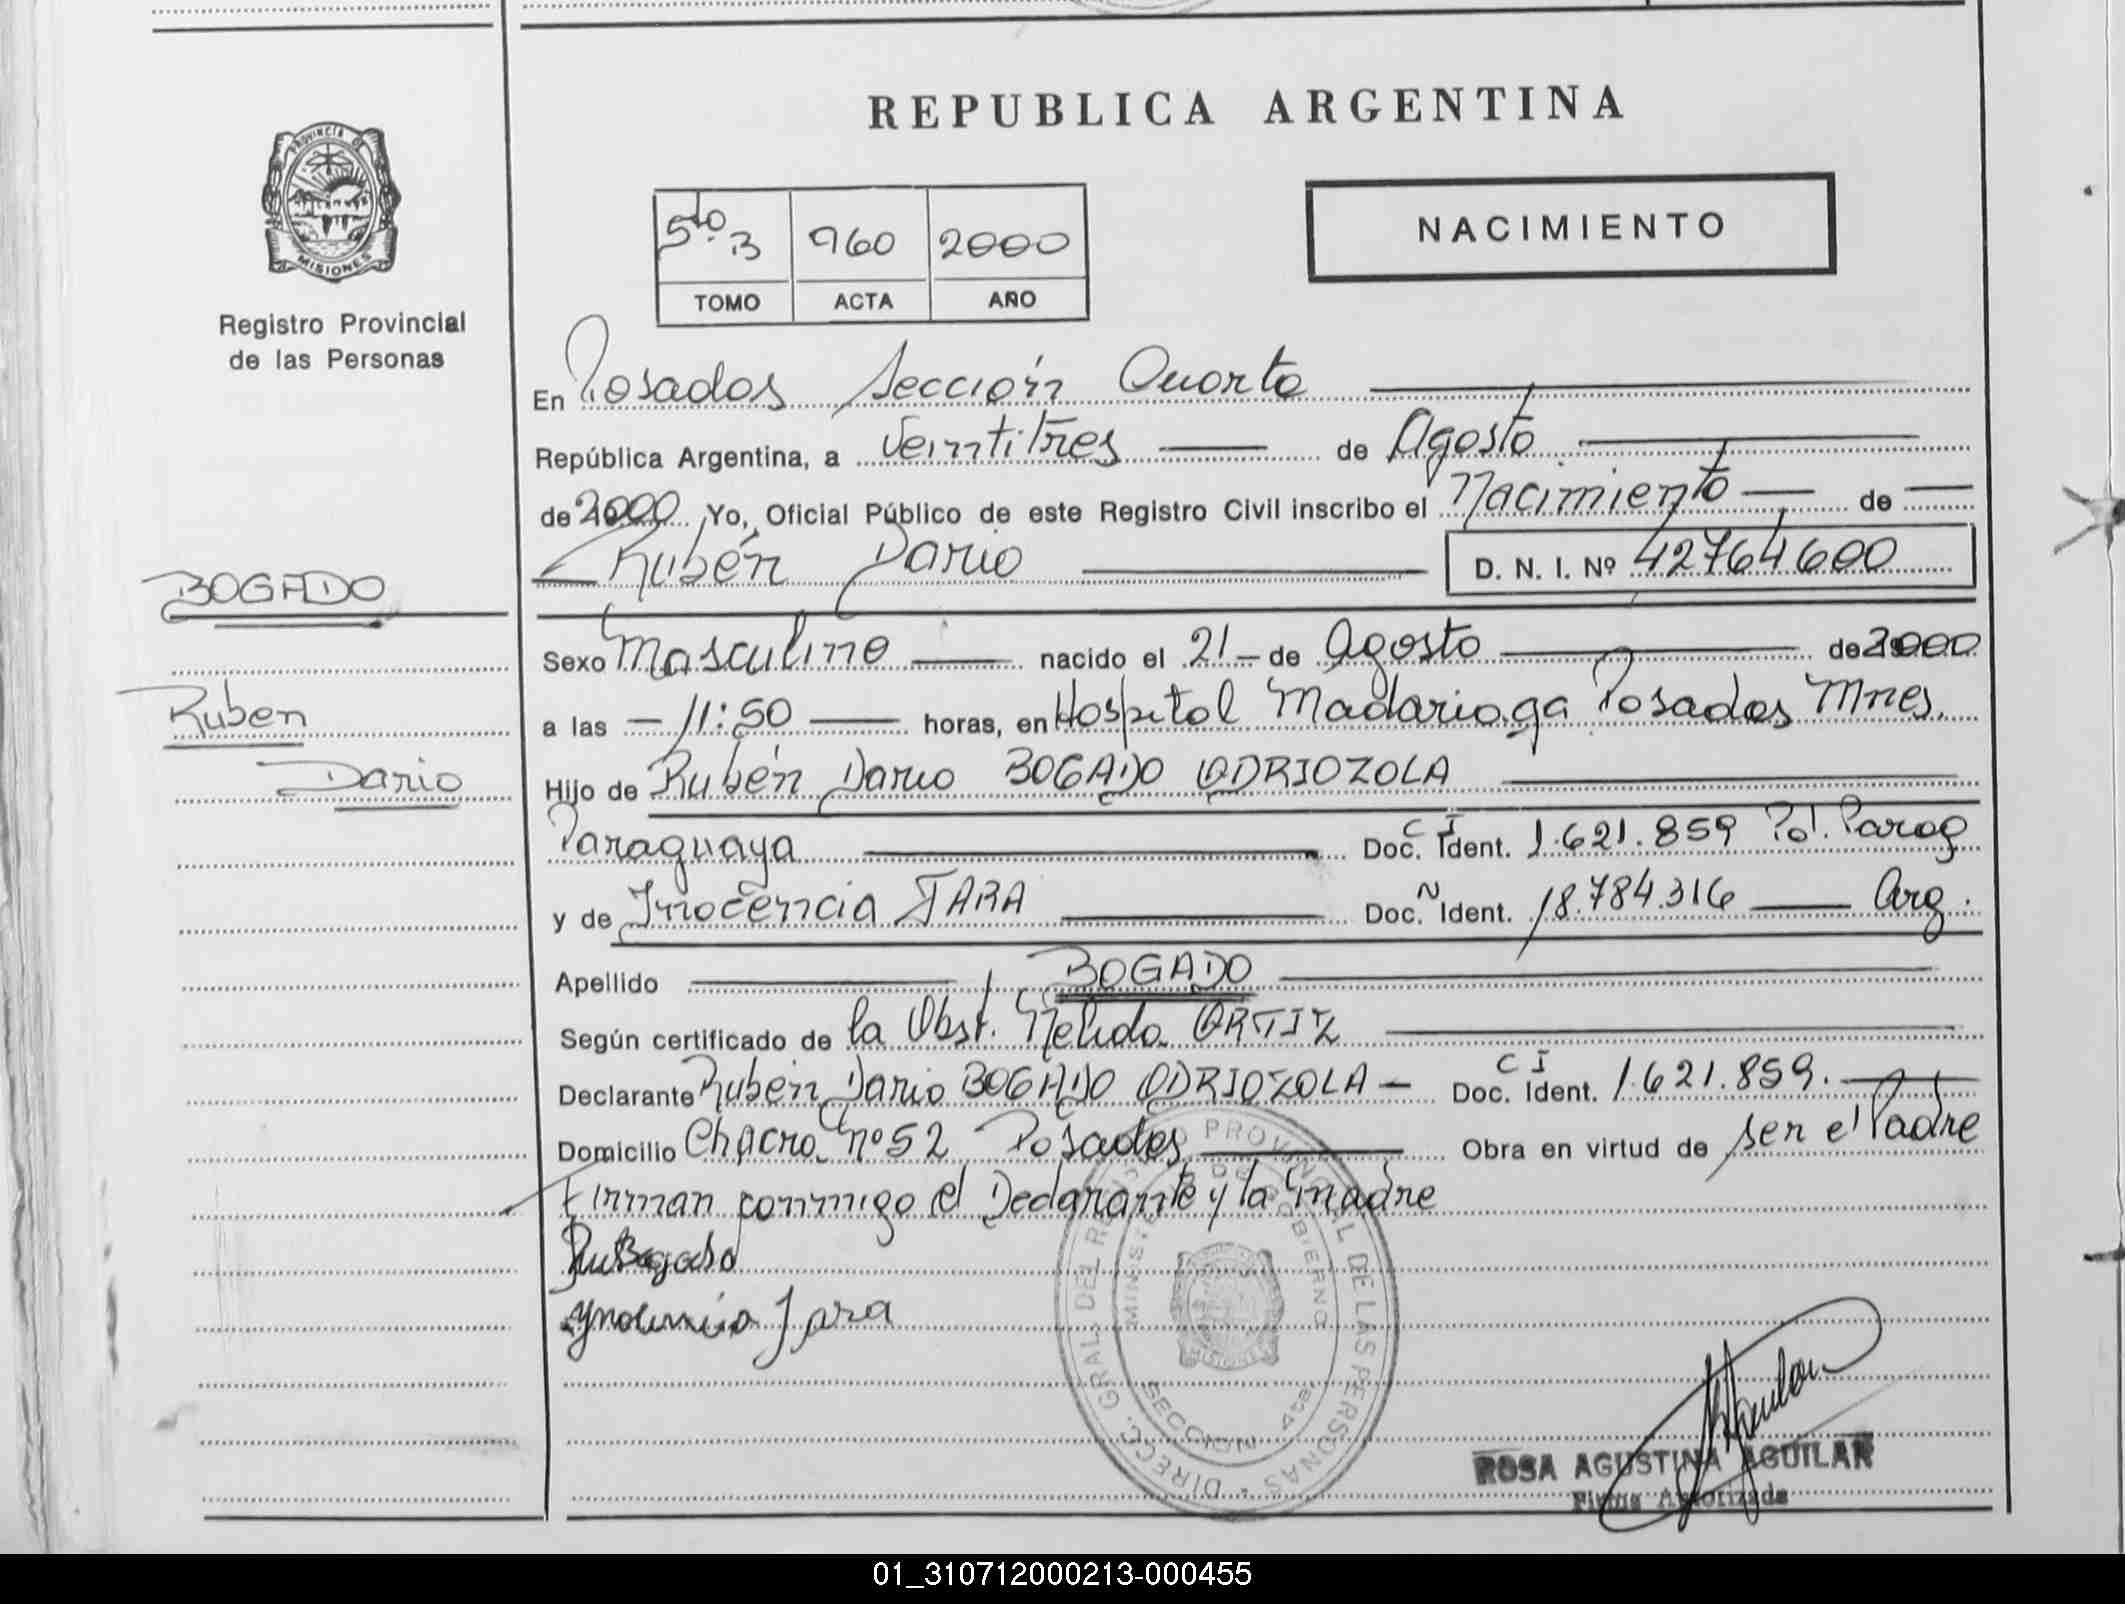 REPUBLICA ARGENTINA
PROVINCIA DE
MISIONES
Registro Provincial
de las Personas
5to B 960 2000
TOMO ACTA AÑO
NACIMIENTO
En Posadas Sección Cuarta
República Argentina, a Veintitres de Agosto
de 2000 Yo, Oficial Público de este Registro Civil inscribo el Nacimiento de
Rubén Dario D. N. I. Nº 42764600
BOGADO
Ruben
Dario
Sexo Masculino nacido el 21 de Agosto de 2000
a las 11:50 horas, en Hospital Madariaga Posadas Mnes.
Hijo de Rubén Dario BOGADO ODRIOZOLA
Paraguaya Doc. Ident. C I 1.621.859 Pol. Parag
y de Inocencia JARA Doc. N Ident. 18.784.316 Arg.
Apellido BOGADO
Según certificado de la Obst. Nelida ORTIZ
Declarante Rubén Dario BOGADO ODRIOZOLA Doc. Ident. C I 1.621.859.
Domicilio Chacra nº 52 Posadas Obra en virtud de ser el Padre
Firman conmigo el Declarante y la Madre
Inocencia Jara
DIRECC. GRAL. DEL REGISTRO PROVINCIAL DE LAS PERSONAS
MINIST. DE GOBIERNO
SECCION 4ta.
ROSA AGUSTINA AGUILAR
Firma Autorizada
01_310712000213-000455